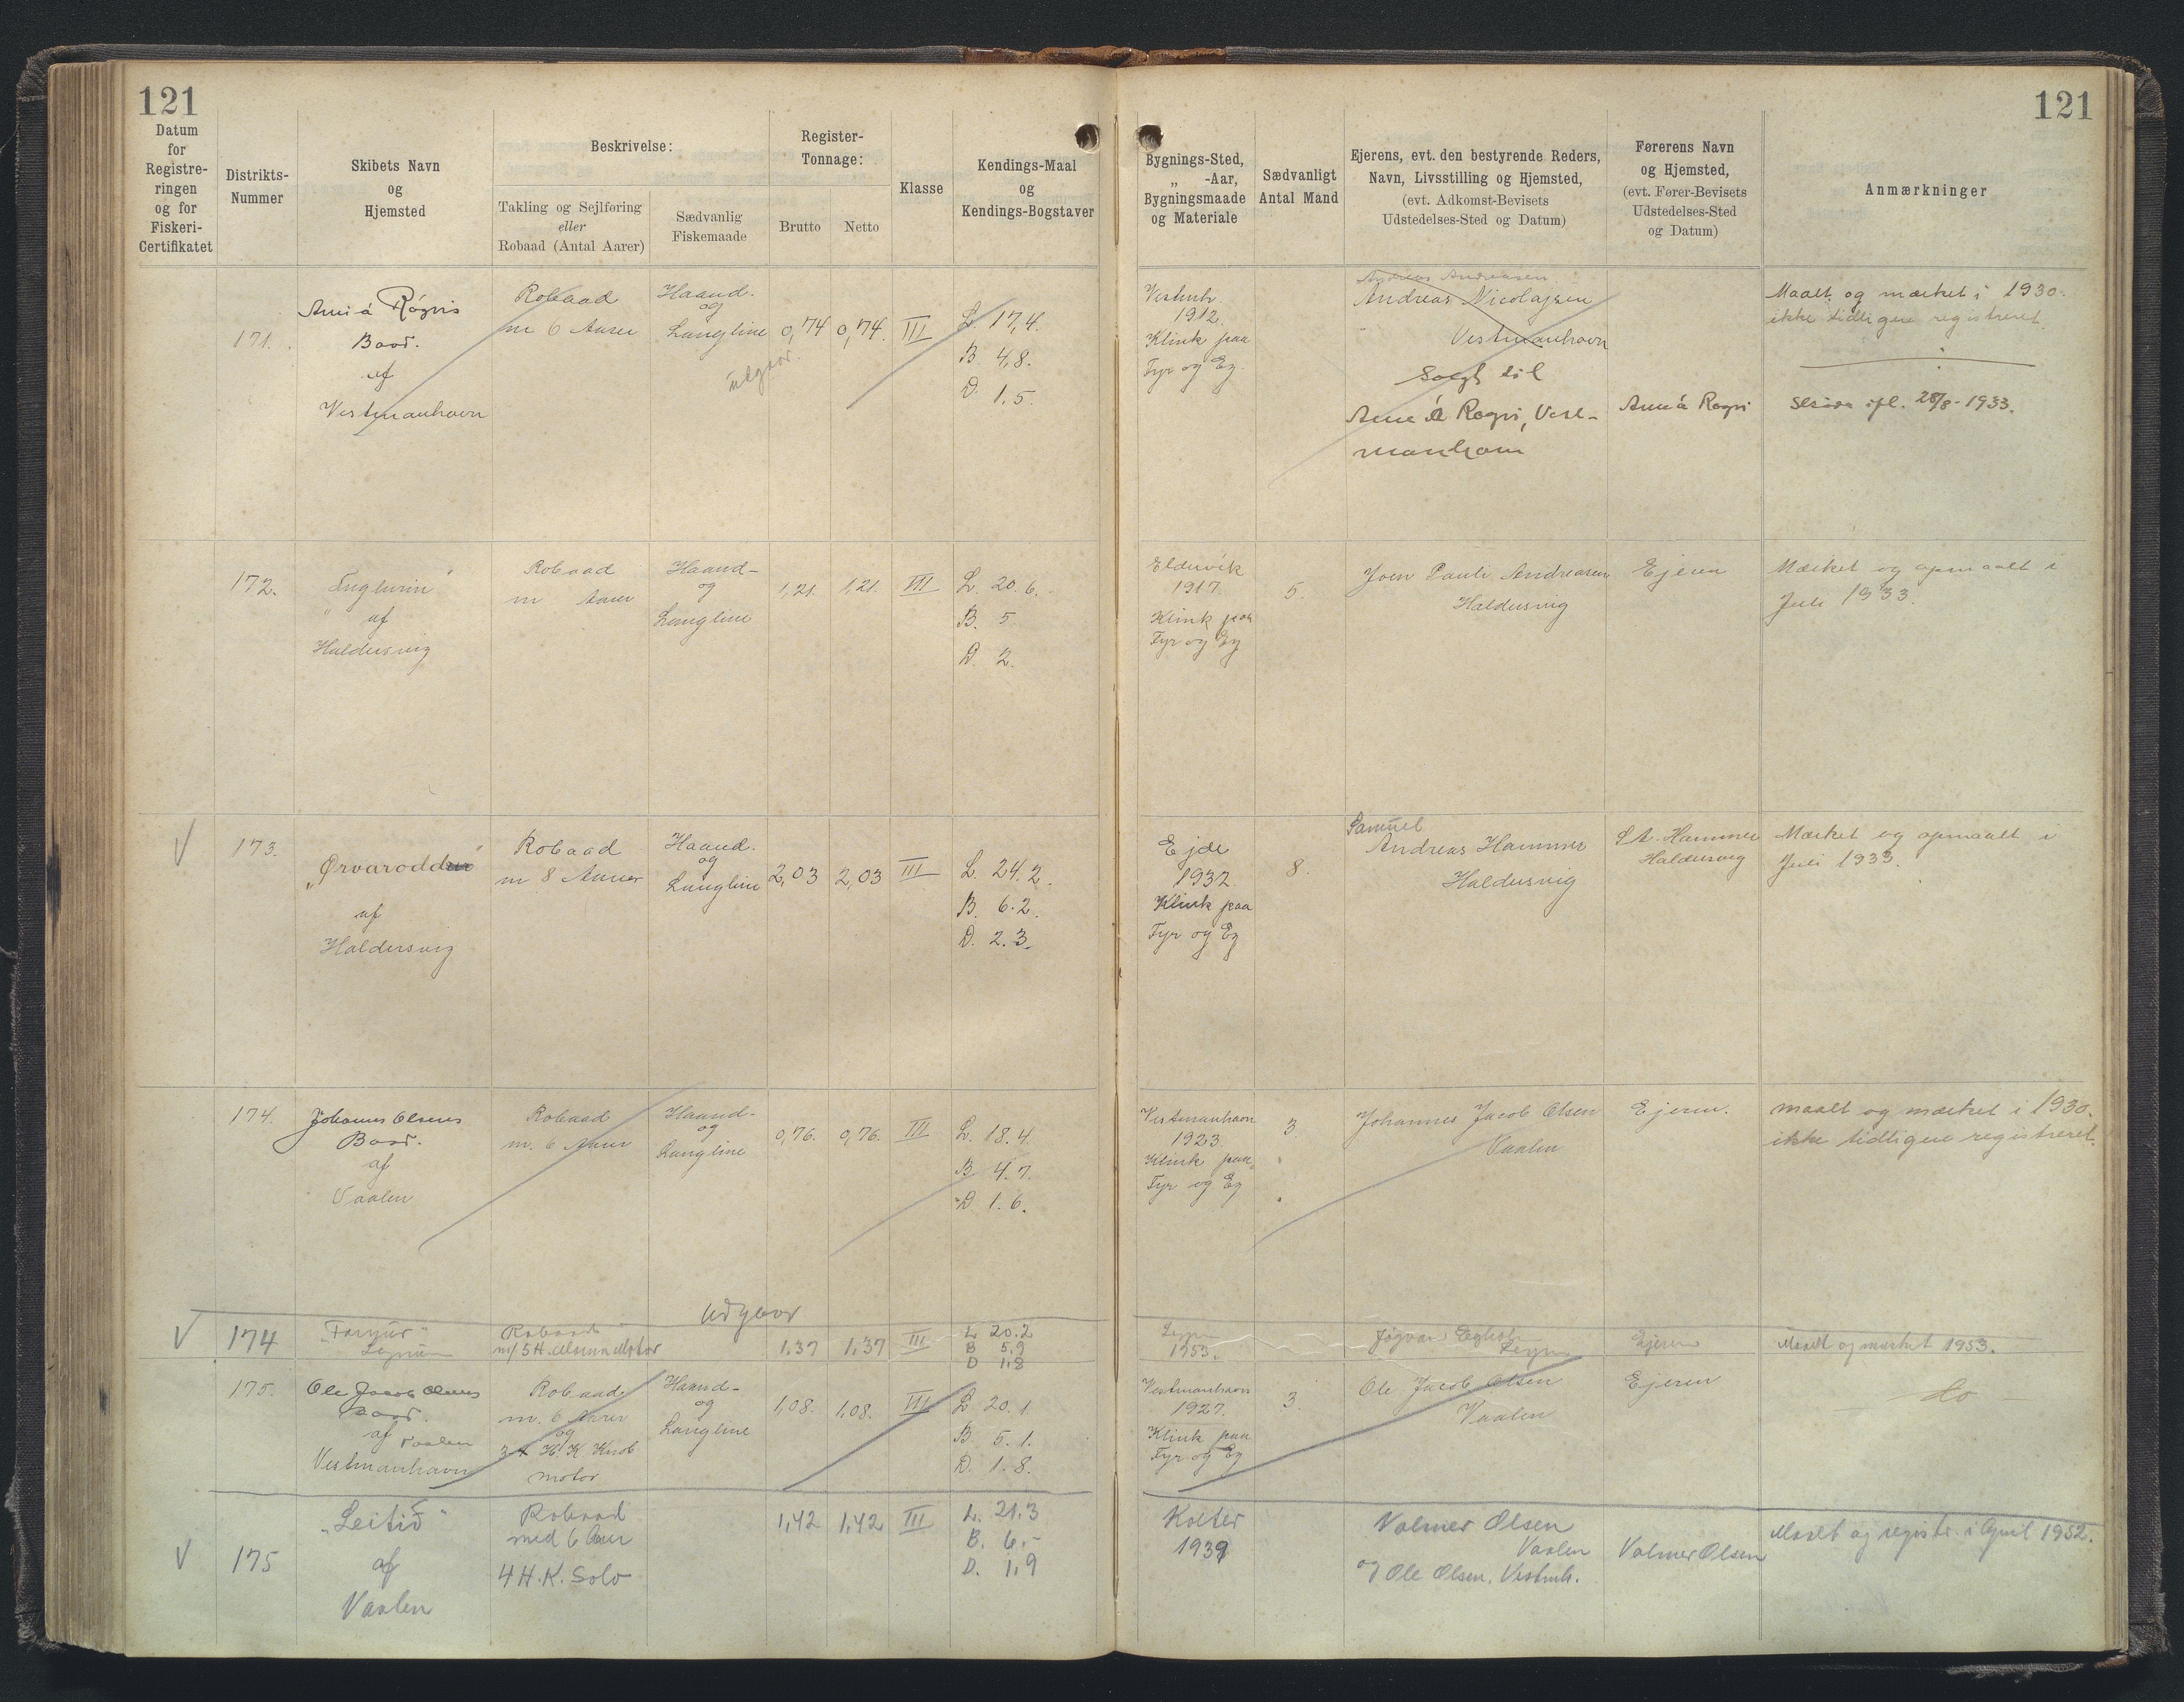 121
121
Datum
for
Registre-
ringen
og for
Fiskeri-
Certifikatet
Distrikts-
Nummer
Skibets Navn
og
Hjemsted
Beskrivelse:
Takling og Sejlføring
eller
Robaad (Antal Aarer)
Sædvanlig
Fiskemaade
Register-
Tonnage:
Brutto
Netto
Klasse
Kendings-Maal
og
Kendings-Bogstaver
Bygnings-Sted,
„ -Aar,
Bygningsmaade
og Materiale
Sædvanligt
Antal Mand
Ejerens, evt. den bestyrende Reders,
Navn, Livsstilling og Hjemsted,
(evt. Adkomst-Bevisets
Udstedelses-Sted og Datum)
Førerens Navn
og Hjemsted,
(evt. Fører-Bevisets
Udstedelses-Sted
og Datum)
Anmærkninger
171.
Baad.
af
Vestmanhavn
Robaad
m 6 Aarer
Haand-
og
Langline
Udgaar.
0,74
0,74.
III
L. 17,4.
B. 4,8.
D. 1.5.
Vestmh.
1912.
Klink paa
Fyr og Eg.
Andreas Andreasen
Andreas Nicolajsen
Vestmanhavn
Solgt til
Vest-
manhavn
Maalt og mærket i 1930.
ikke tidligere registreret.
28/8-1933.
172.
"
af
Haldersvig
Robaad
m Aarer
Haand-
og
Langline
1,21.
1,21.
III
L. 20.6.
B. 5.
D. 2.
Eldevik
1917.
Klink paa
Fyr og Eg
5.
Joen Pauli Andreasen
Haldersvig
Ejeren
Mærket og opmaalt i
Juli 1933.
V
173.
af
Haldersvig
Robaad
m 8 Aarer
Haand-
og
Langline
2,03
2,03
III
L. 24.2.
B. 6.2.
D. 2.3.
Ejde
1932.
Klink paa
Fyr og Eg
8.
Samuel
Andreas Hammer
Haldersvig
S A. Hammer
Haldersvig
Mærket og opmaalt i
Juli 1933.
174.
Johannes Olsens
Baad.
af
Vaalen
Robaad
m. 6 Aarer
Haand-
og
Langline
0,76.
0,76.
III
L. 18.4.
B. 4.7.
D. 1.6.
Vestmanhavn
1923.
Klink paa
Fyr og Eg
3
Johannes Jacob Olsen
Vaalen
Ejeren.
Maalt og mærket i 1930.
ikke tidligere registreret.
Udgaar
V
174
Robaad
1.37
1.37
III
L 20.2
B 5.9
D 1.8
1953.
Ejeren
Maalt og mærket 1953.
175.
Ole Jacob Olsens
Baad.
af Vaalen
Vestmanhavn
Robaad
m. 6 Aarer
og
motor
Haand-
og
Langline
1,08.
1,08.
III
L 20.1.
B. 5.1.
D. 1.8.
Vestmanhavn
1927.
Klink paa
Fyr og Eg
3.
Ole Jacob Olsen
Vaalen
Ejeren
Do
V
175
„Leitið"
af
Vaalen
Robaad
med 6 Aarer
4 H.K. Solo
1,42
1,42
III
L. 21.3
B. 6.-
D. 1.9
Kolter
1939
Valmer Olsen
Vaalen
og Ole Olsen, Vestmh.
Valmer Olsen
Maalt og registr. i April 1952.